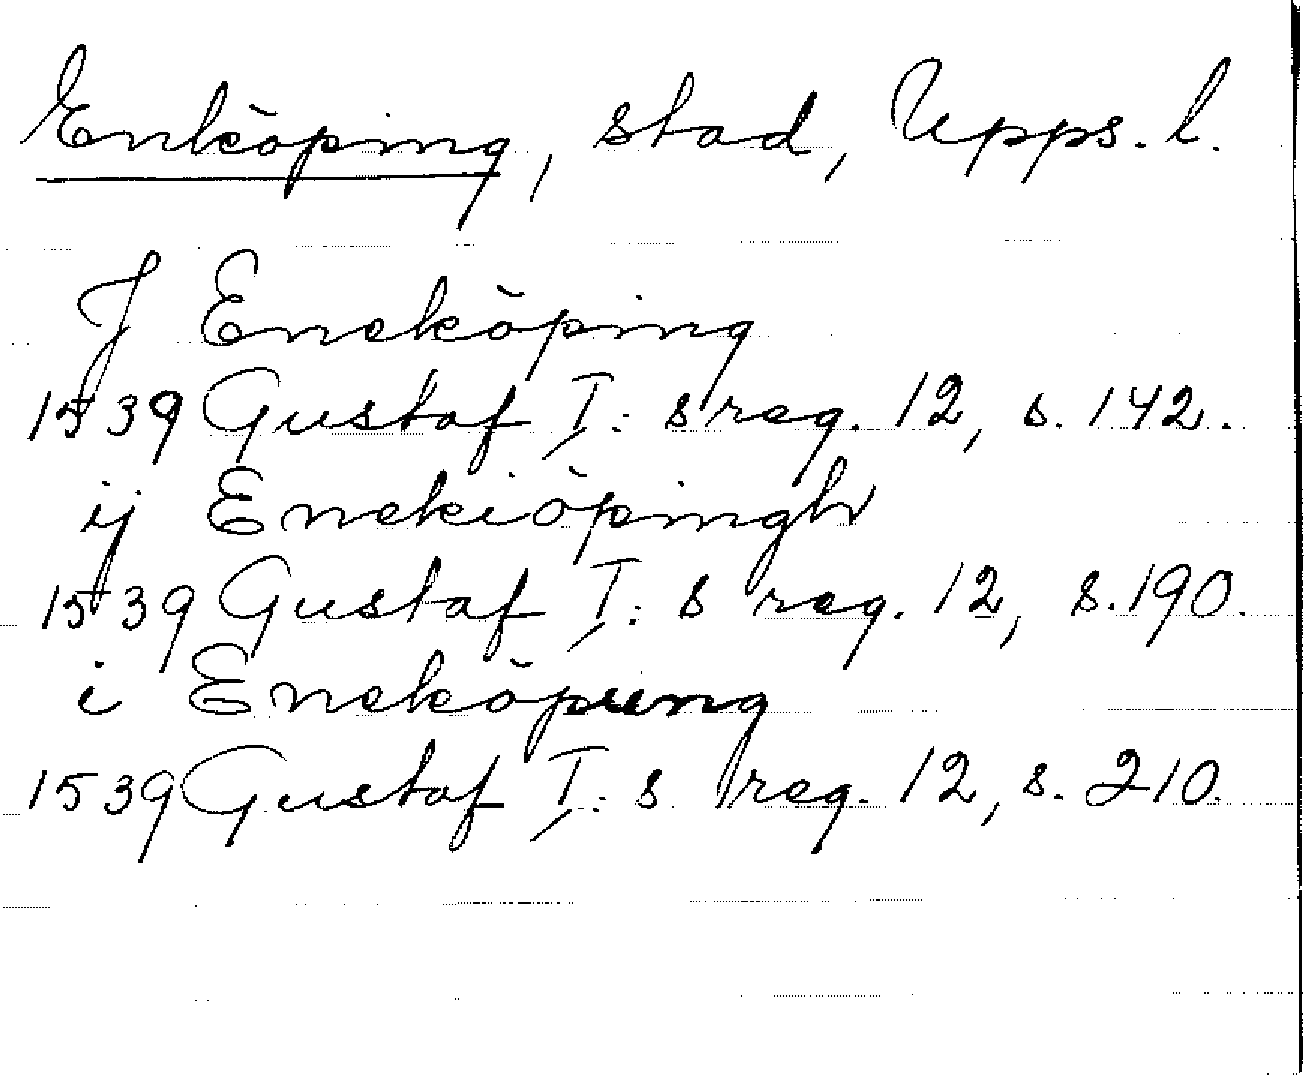 Enköping, stad, Upps. l.
J Eneköping
1539 Gustaf I:s reg. 12, s. 142.
ij Enekiöpingh
1539 Gustaf I:s reg. 12, s. 190.
i Eneköpung
1539 Gustaf I:s reg. 12, s. 210.